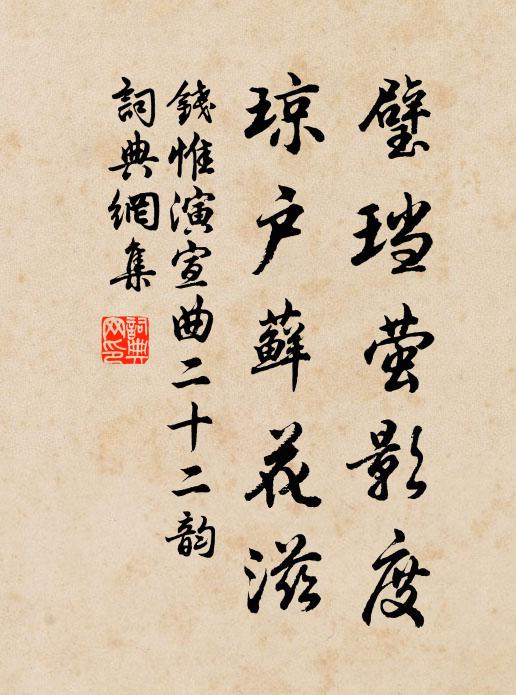 璧珰萤影度
琼户藓花滋
錢惟演宣曲二十二韵
詞典網集
詞典
网印